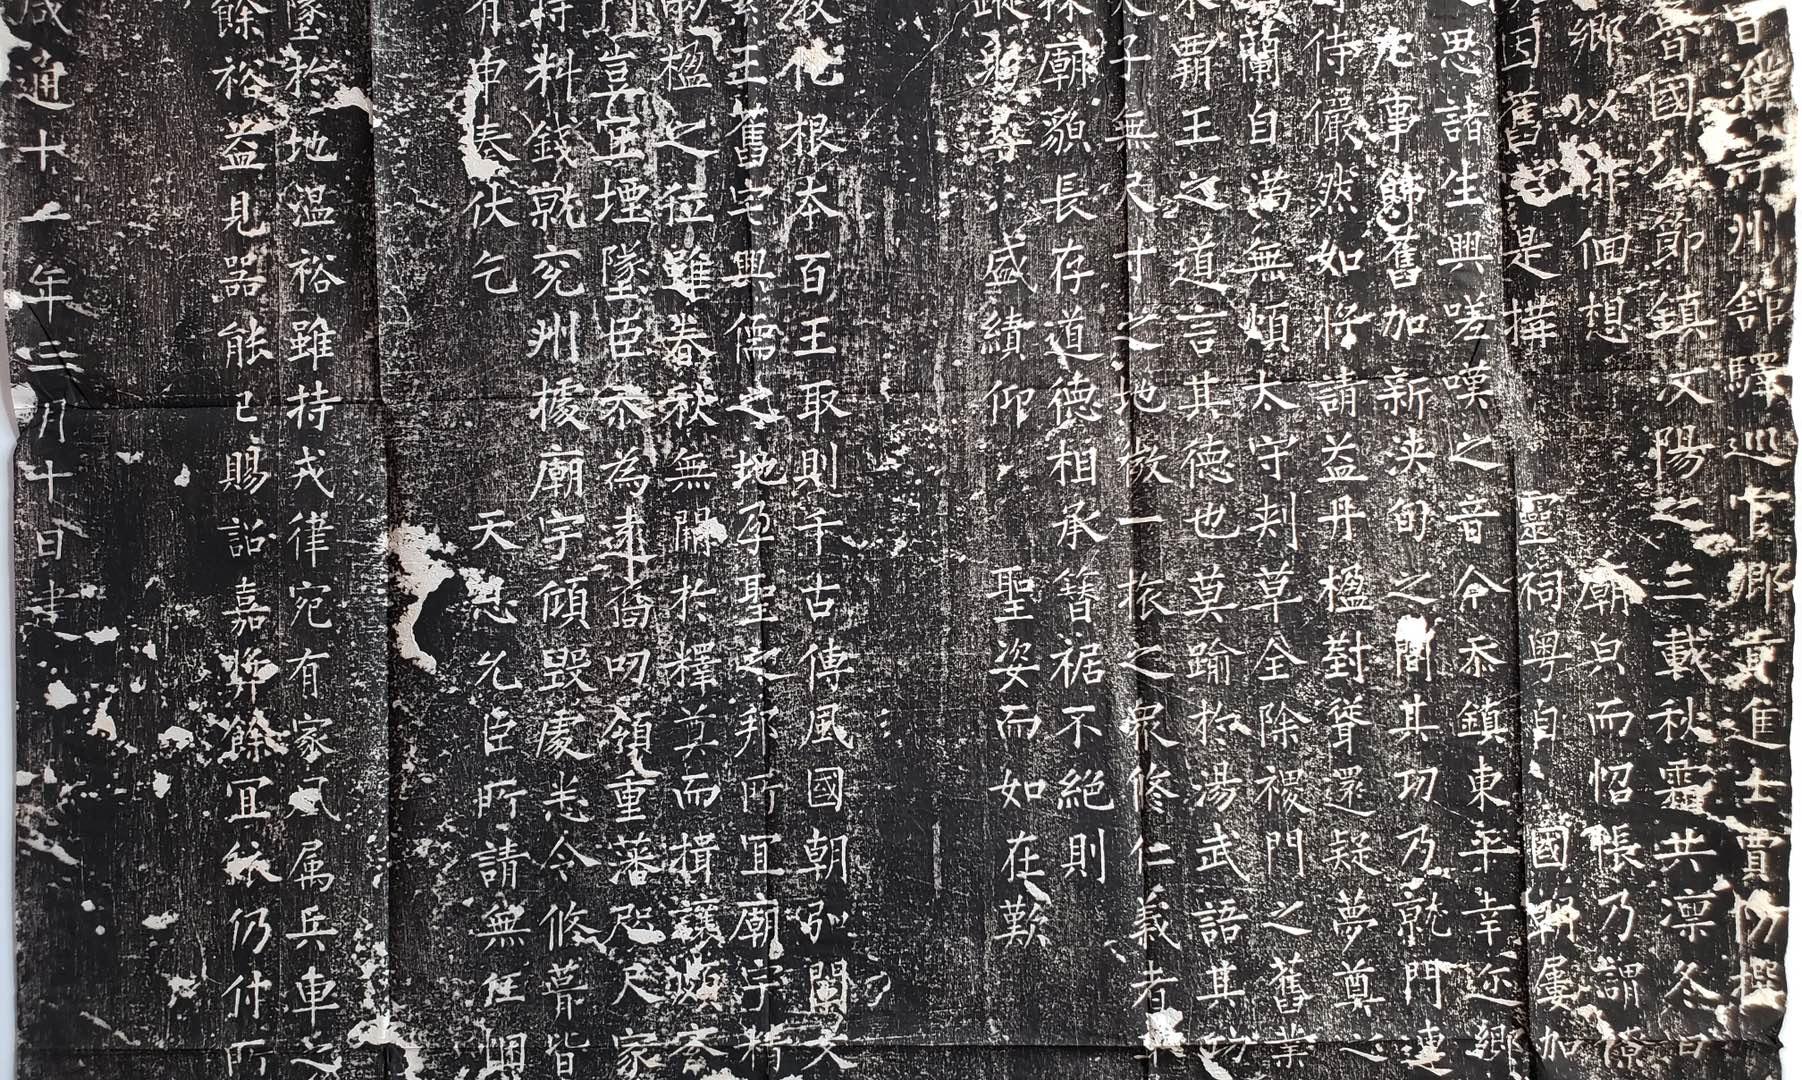 州館驛巡官鄉貢進士賈防撰
國公節鎮汶陽之三載秋霜共凜冬日
鄉以徘徊想 廟皃而怊悵乃謂
因舊是構 靈祠粤自 國朝屢加
思諸生興嗟嘆之音今忝鎮東平幸迩鄉
元事歸舊加新浹旬之間其功乃就門連
侍儼然如將請益丹楹對聳還疑夢奠之
蘭自滿無煩太守刬草全除禝門之舊業
霸王之道言其德也莫踰於湯武語其功
子無尺寸之地微一旅之眾修仁義者
廟貌長存道德相承簪裾不絕則
盛績仰 聖姿而如在歎
教化根本百王取則千古傳風國朝弘闡文
素王舊宅興儒之地孕聖之邦所宜廟宇精
兩楹之位雖春秋無闕於釋奠而揖讓
豈宜堙墜臣忝為遠裔叨領重藩咫尺家
持料錢就兗州據廟宇傾毀處悉令修葺皆
有申奏伏乞 天恩允臣所請無任
墜於地溫裕雖持戎律宛有家風属兵車之
餘裕益見器能已賜詔嘉奬餘冝依仍付所
咸通十一年三月十日建